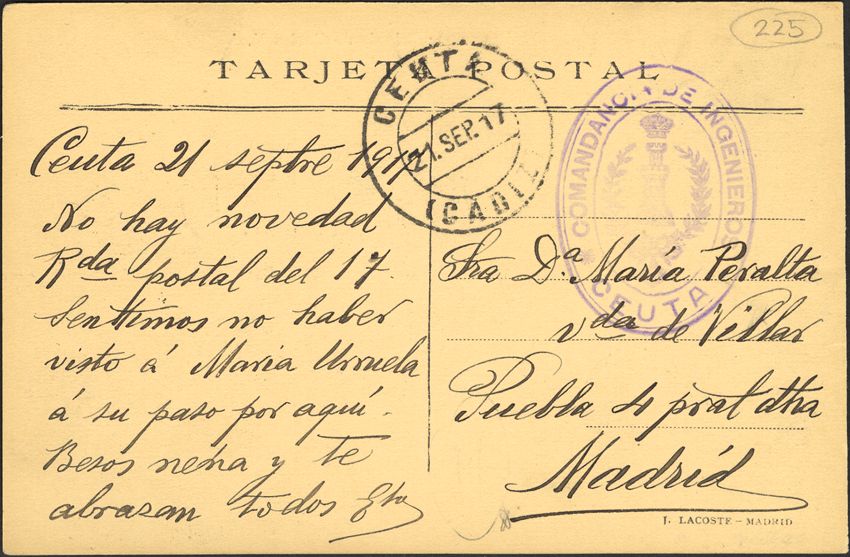 225
TARJETA POSTAL
CEUTA
21.SEP.17
(CADIZ)
COMANDANCIA DE INGENIEROS
* CEUTA *
Ceuta 21 septre 1917
No hay novedad
Rda postal del 17.
Sentimos no haber
visto á Maria Urruela
á su paso por aquí.
Besos nena y te
abrazan todos
Sra D.a Maria Peralta
vda de Villar
Puebla 4 pral dha
Madrid
J. LACOSTE - MADRID